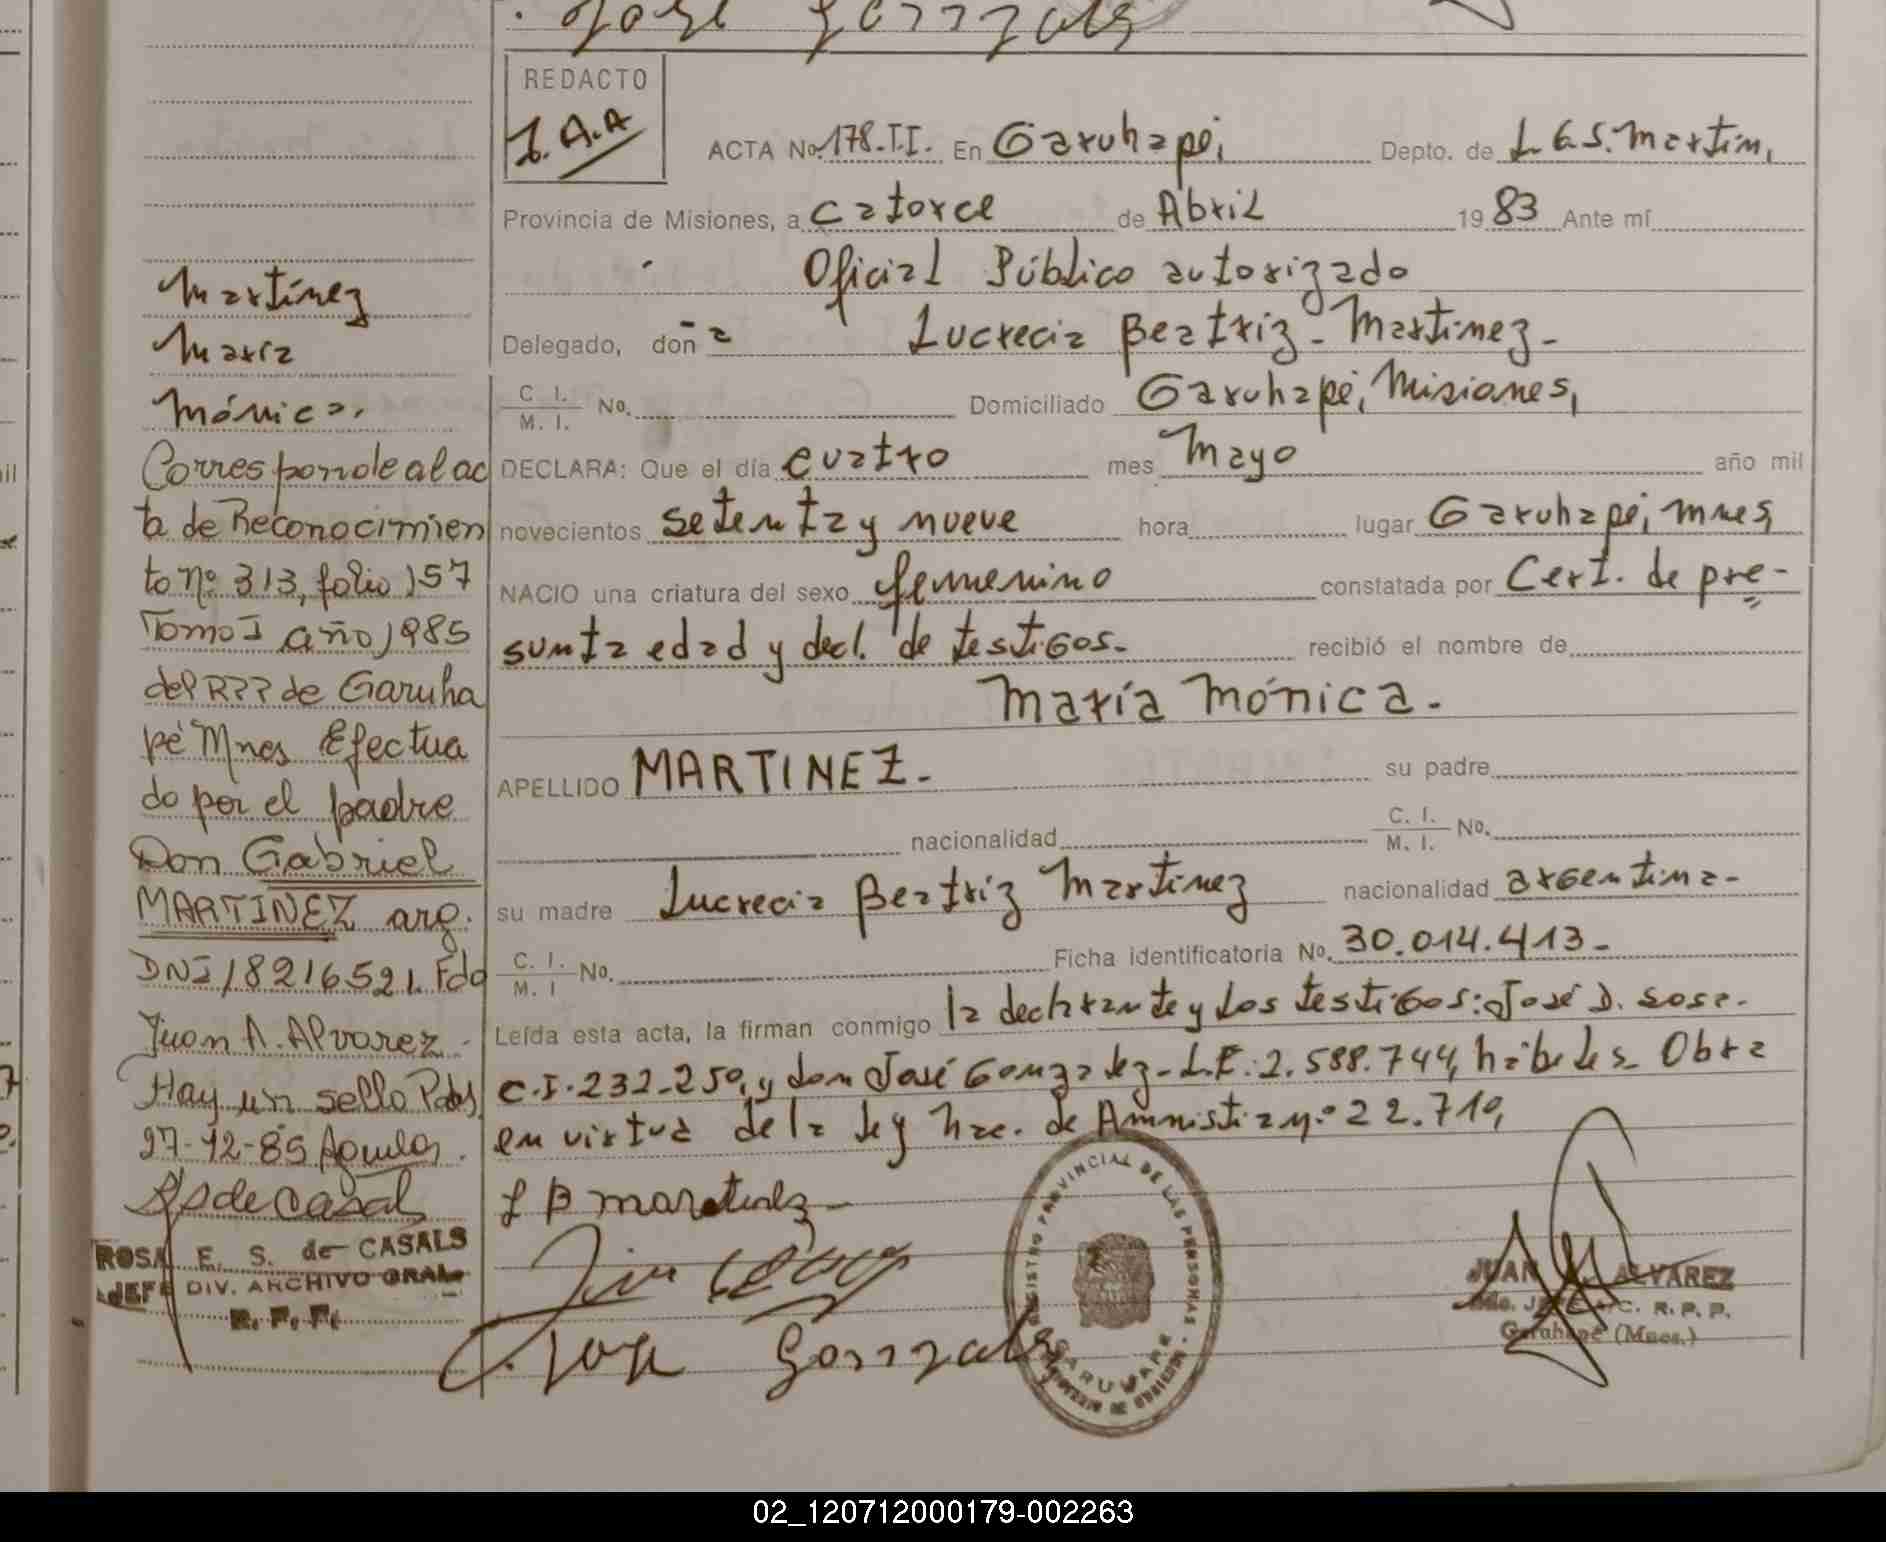 José Gonzales
REDACTO
J. A. A
ACTA No. 178. T.I. En Garuhapé, Depto. de L. G. S. Martin,
Provincia de Misiones, a catorce de Abril 19 83 Ante mí
Oficial Público autorizado
Delegado, doña Lucrecia Beatriz - Martinez -
C. I. / M. I. No. Domiciliado Garuhapé, Misiones,
DECLARA: Que el día cuatro mes Mayo año mil
novecientos setenta y nueve hora lugar Garuhapé, Mnes,
NACIO una criatura del sexo femenino constatada por Cert. de pre-
sunta edad y decl. de testigos. recibió el nombre de
María Mónica.
APELLIDO MARTINEZ. su padre
nacionalidad C. I. / M. I. No.
su madre Lucrecia Beatriz Martínez nacionalidad argentina -
C. I. / M. I No. Ficha identificatoria No. 30.014.413 -
Leída esta acta, la firman conmigo la declarante y los testigos: José D. Sosa -
C.I. 232.250, y don José Gonzalez - L.E. 2.588.744, hábiles - Obra
en virtud de la ley Nac. de Amnistia nº 22.710,
L B martinez
José Gonzales
REGISTRO PROVINCIAL DE LAS PERSONAS
GARUHAPE
MINISTERIO DE GOBIERNO
JUAN A. ALVAREZ
JEFE A/C. R. P. P.
Garuhapé (Mnes.)
Martínez
María
Mónica.
Corresponde al ac
ta de Reconocimien
to nº 313, folio 157
Tomo I año 1985
del R?? de Garuha
pé Mnes Efectua
do por el padre
Don Gabriel
MARTINEZ arg.
DNI 18216521. Fdo
Juan A. Alvarez.
Hay un sello Pdas
27-12-85
S de Casals
ROSA E. S. de CASALS
JEFE DIV. ARCHIVO GRAL.
R. P. P.
02_120712000179-002263